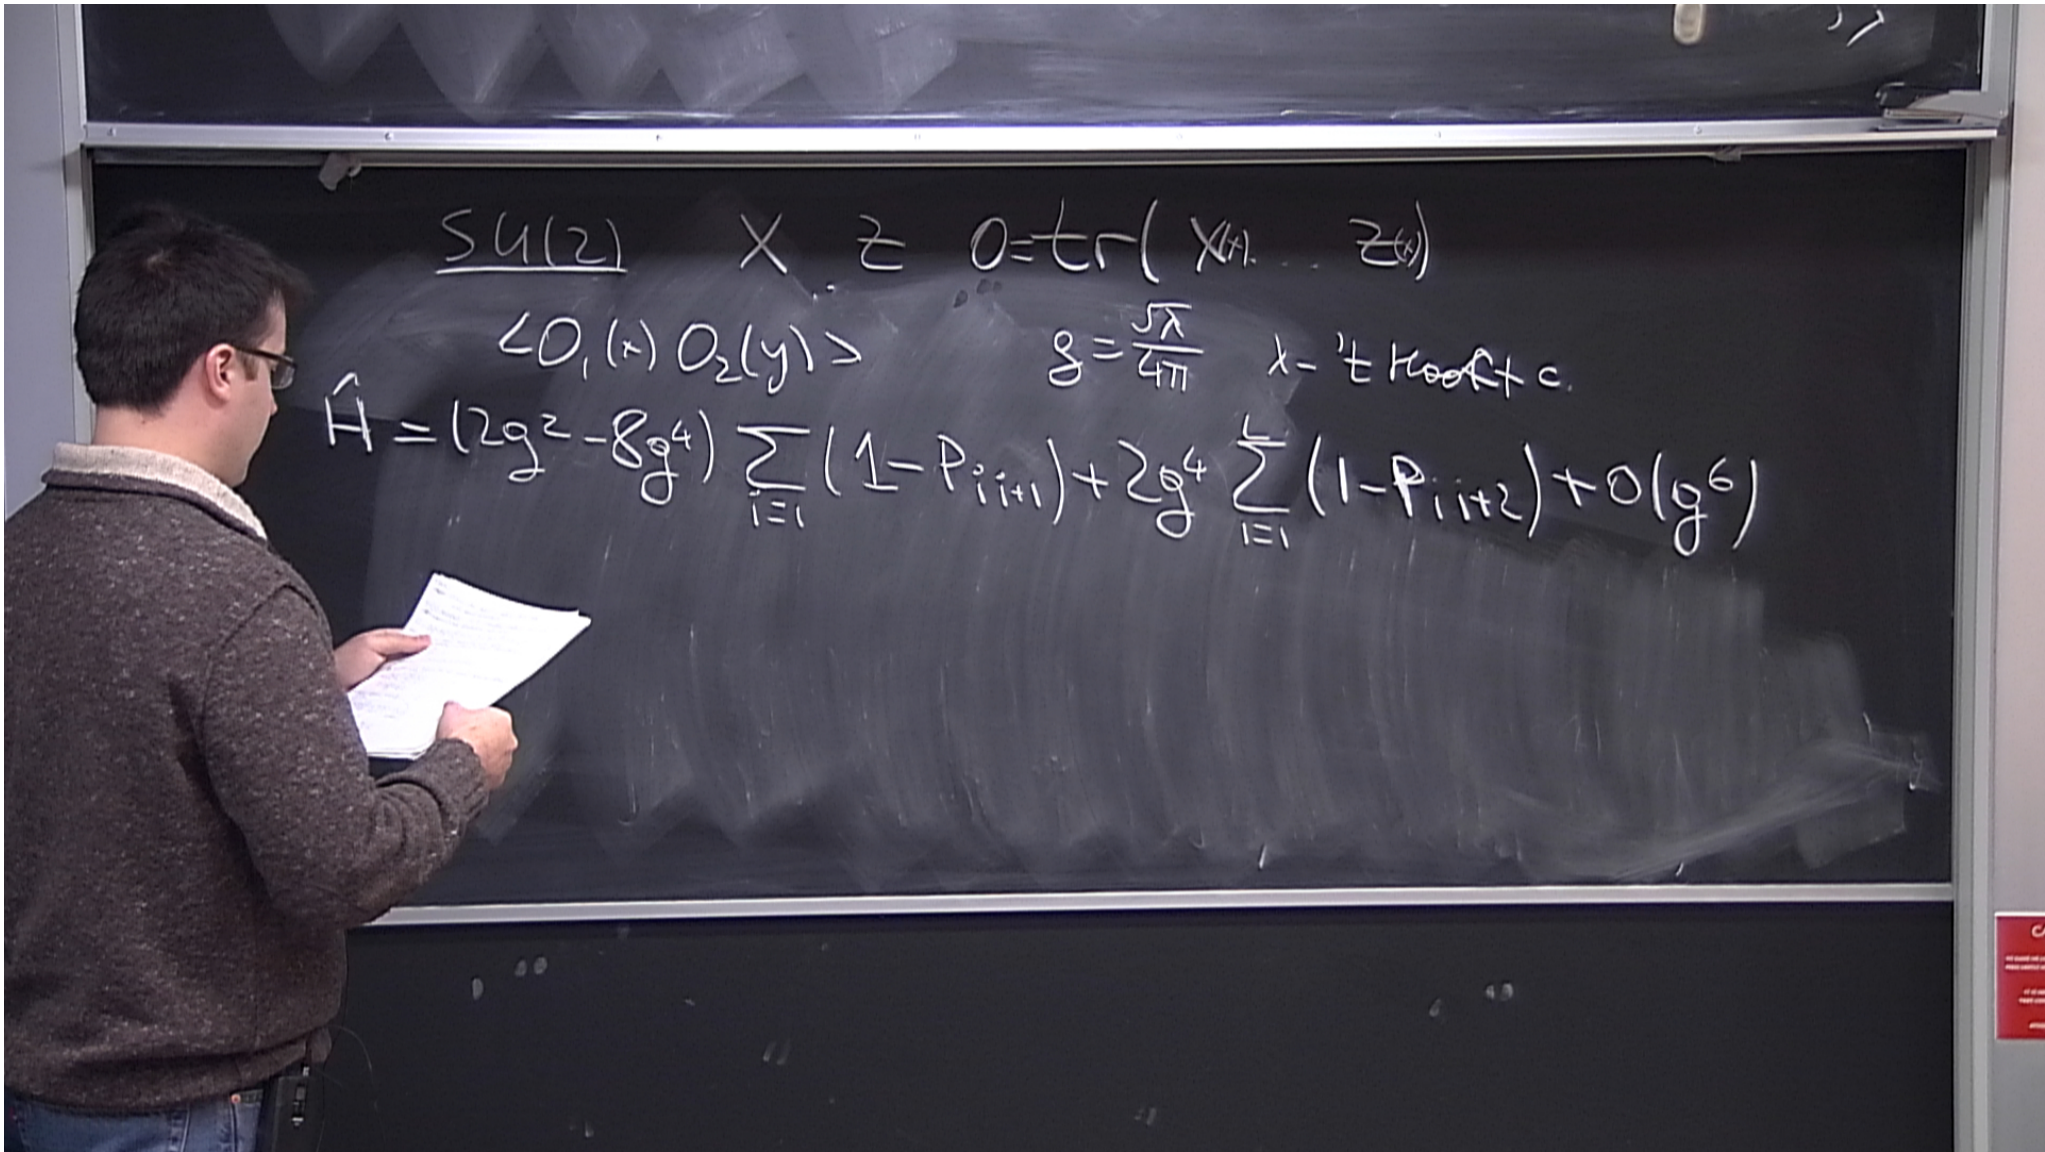 SU(2) X Z O=tr( X(x)... Z(x))
<O₁(x) O₂(y)> g = √λ/4π λ - 't Hooft c.
Ĥ = (2g² - 8g⁴) ∑_{i=1} (1 - P_{i i+1}) + 2g⁴ ∑_{i=1}^{L} (1 - P_{i i+2}) + O(g⁶)